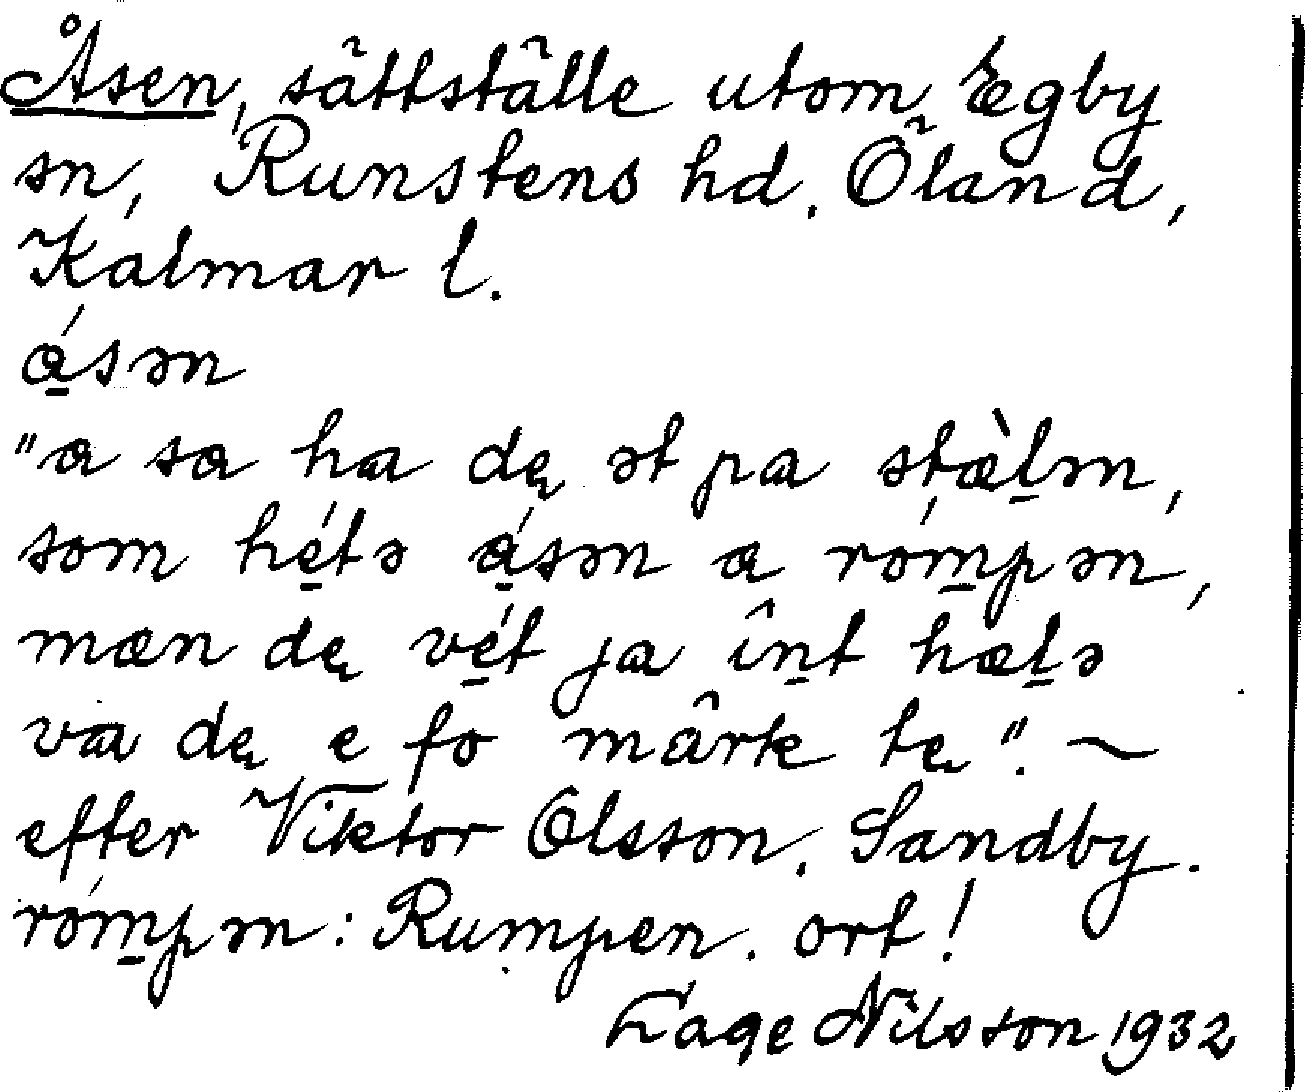 Åsen, sättställe utom Egby
sn, Runstens hd. Öland,
Kalmar l.
ɑ̱́sən
"a sa ha dę ət pa stæ̀ḻən,
som hé̱tə ɑ̱́sən a róm̱pən,
mæn dę vé̱t ja îṉt hæḻə
va dę e fo mârk tę". ~
efter Viktor Olsson. Sandby.
róm̱pən: Rumpen. ort!
Lage Nilsson 1932